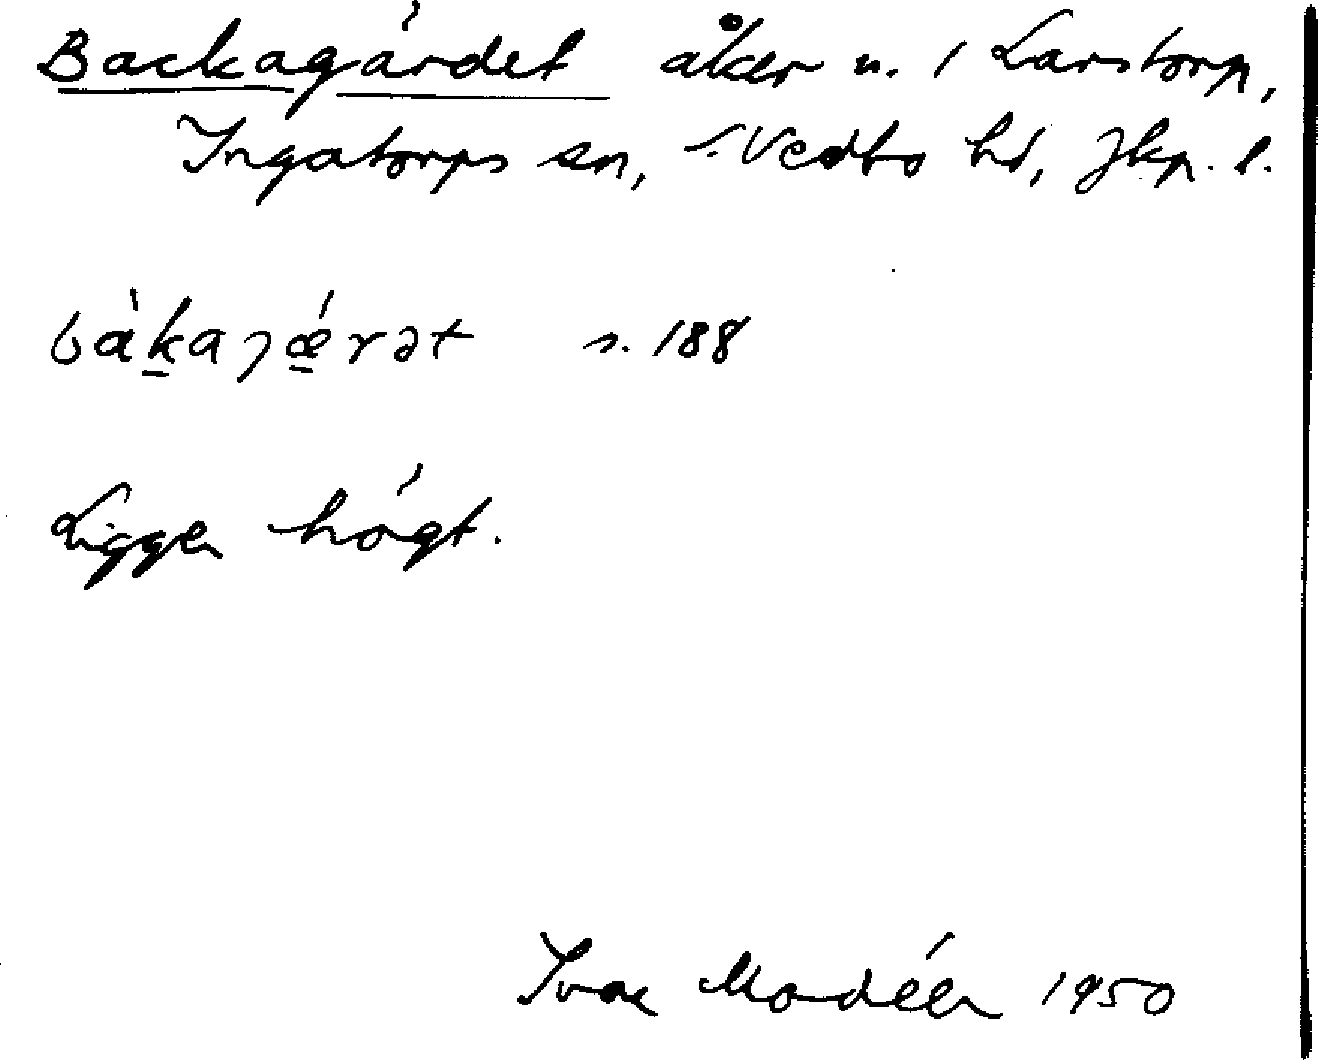 Backagärdet åker u. / Larstorp,
Ingatorps sn, S. Vedbo hd, Jkp. l.
bákaɟǽrət s. 188
Ligger högt.
Ivar Modéer 1950